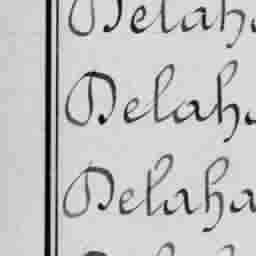 Delaha
Delaha
Delaha